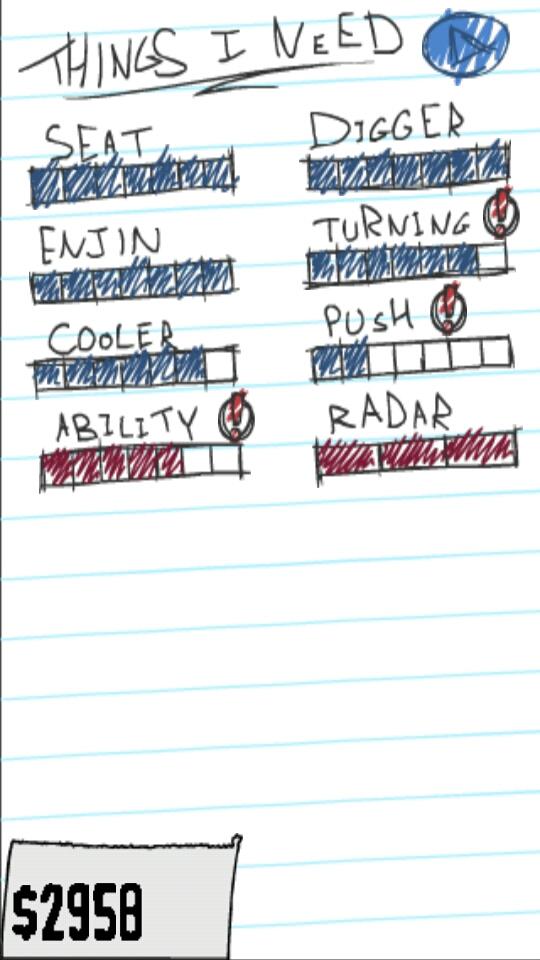 THINGS I NEED
SEAT
DIGGER
ENJIN
TURNING !
COOLER
PUSH !
ABILITY !
RADAR
$2958